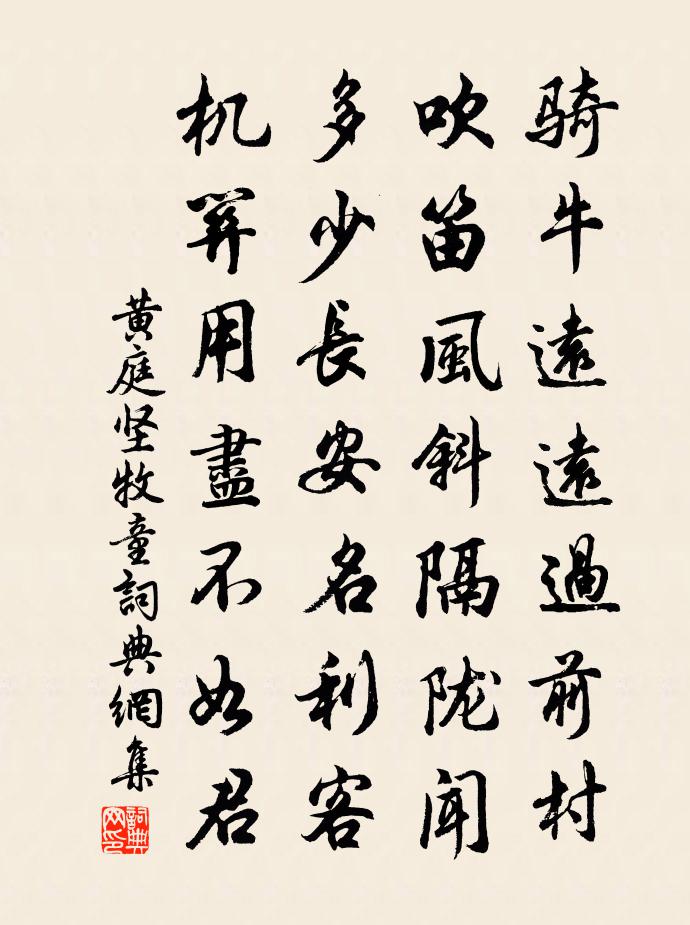 骑牛遠遠過前村
吹笛風斜隔陇聞
多少長安名利客
机関用盡不如君
黄庭坚牧童詞典網集
詞典網印